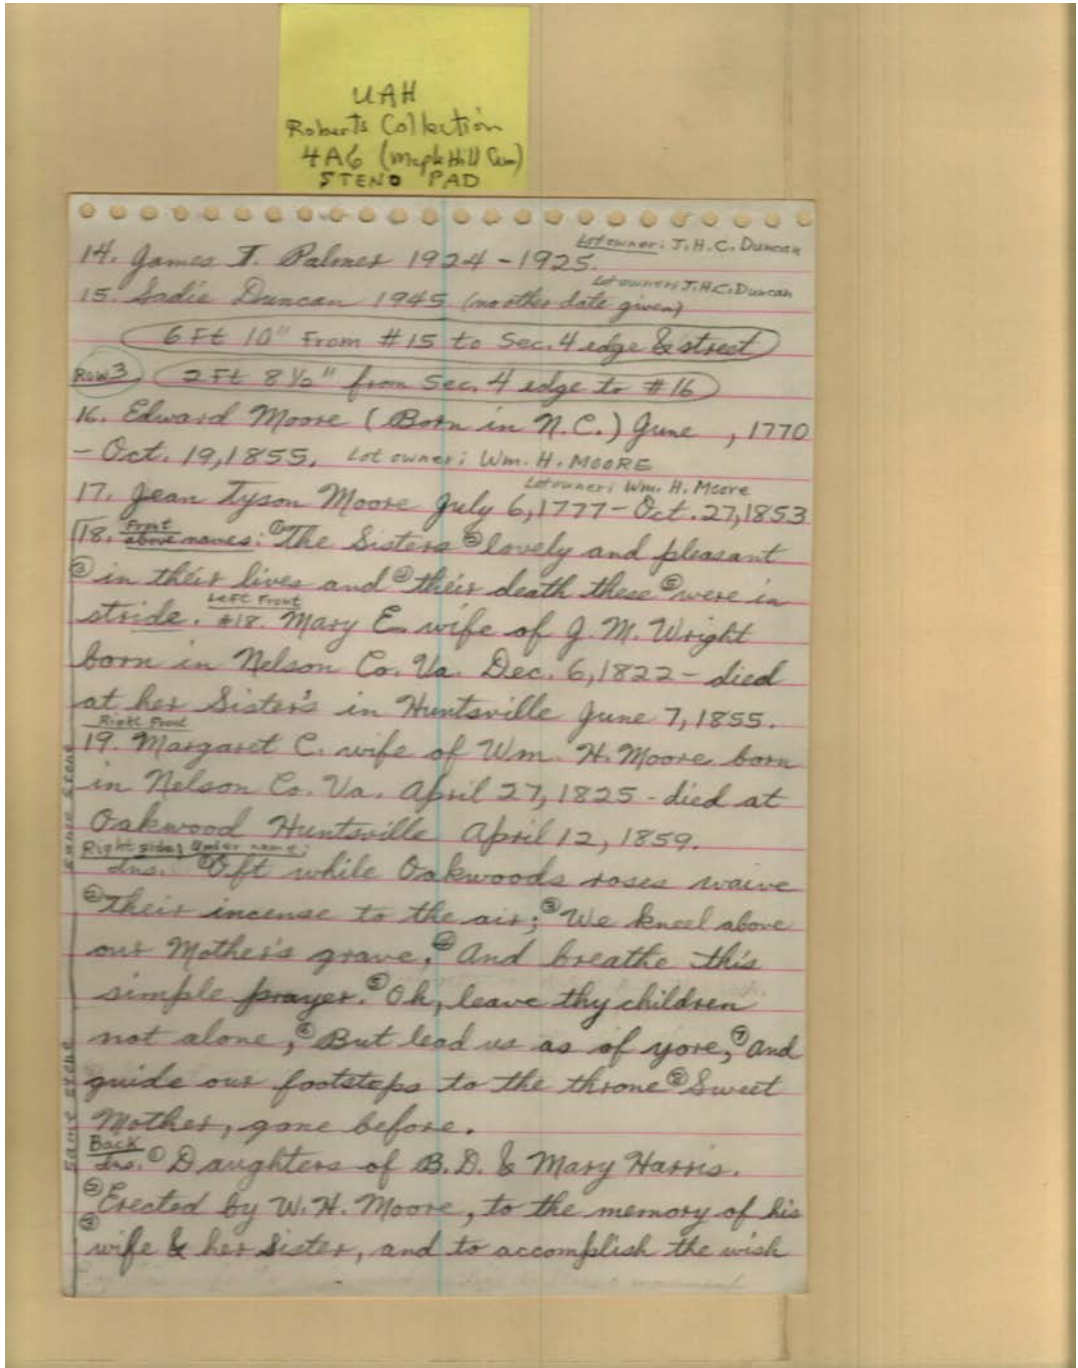 UAH
Roberts Collection
4A6 (Maple Hill Cem)
STENO PAD
Lot owner: J.H.C. Duncan
14. James T. Palmer 1924 - 1925.
Lot owner: J.H.C. Duncan
15. Sadie Duncan 1945 (no other date given)
6 Ft 10" From #15 to Sec. 4 edge & street
Row 3 2 Ft 8 1/2" from Sec. 4 edge to #16
16. Edward Moore (Born in N.C.) June , 1770
- Oct. 19, 1855. Lot owner: Wm. H. MOORE
Lot owner: Wm. H. Moore
17. Jean Tyson Moore July 6, 1777 - Oct. 27, 1853
18. Front above names: ① The Sisters ② lovely and pleasant
③ in their lives and ④ their death these ⑤ were in
stride. Left Front #18. Mary E. wife of J. M. Wright
born in Nelson Co. Va. Dec. 6, 1822 - died
at her Sister's in Huntsville June 7, 1855.
Right Front
19. Margaret C. wife of Wm. H. Moore born
in Nelson Co. Va. April 27, 1825 - died at
Oakwood Huntsville April 12, 1859.
Right side, Under name:
Ins. ① Oft while Oakwoods roses waive
② Their incense to the air; ③ We kneel above
our Mother's grave, ④ And breathe this
simple prayer. ⑤ Oh, leave thy children
not alone, ⑥ But lead us as of yore, ⑦ And
guide our footsteps to the throne ⑧ Sweet
Mother, gone before.
Back
Ins. ① Daughters of B.D. & Mary Harris.
② Erected by W. H. Moore, to the memory of his
③ wife & her Sister, and to accomplish the wish
Same stone
Same stone